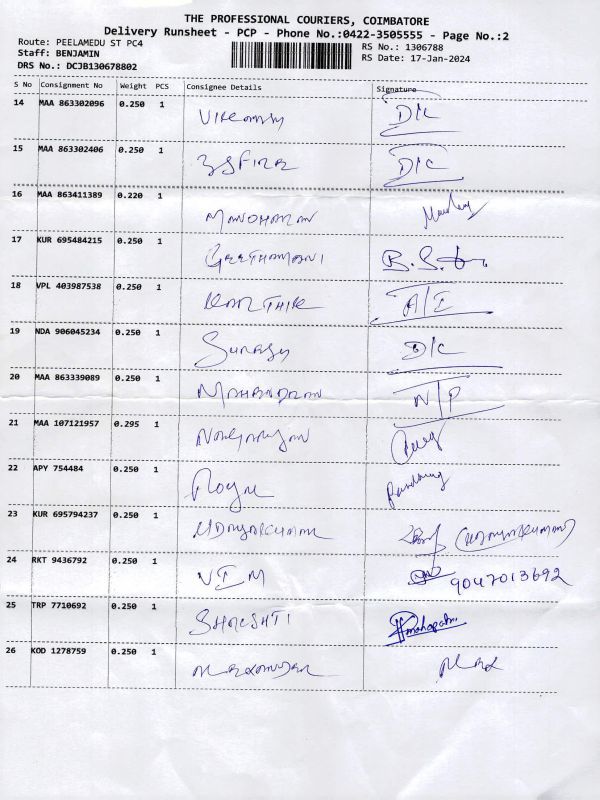 THE PROFESSIONAL COURIERS, COIMBATORE
Delivery Runsheet - PCP - Phone No.:0422-3505555 - Page No.:2
Route: PEELAMEDU ST PC4
RS No.: 1306788
Staff: BENJAMIN
RS Date: 17-Jan-2024
DRS No.: DCJB130678802
S No Consignment No Weight PCS Consignee Details Signature
14 MAA 863302096 0.250 1 D/C
15 MAA 863302406 0.250 1 D/C
16 MAA 863411389 0.220 1 MANOHARAN
17 KUR 695484215 0.250 1 GEETHAMANI
18 VPL 403987538 0.250 1 KARTHIK
19 NDA 906045234 0.250 1 Suresh D/C
20 MAA 863339089 0.250 1 MAHENDRAN N/P
21 MAA 107121957 0.295 1 Narayanan
22 APY 754484 0.250 1
23 KUR 695794237 0.250 1 UDAYAKUMAR (UDAYAKUMAR)
24 RKT 9436792 0.250 1 VIM 9047013692
25 TRP 7710692 0.250 1 SHRISHTI
26 KOD 1278759 0.250 1